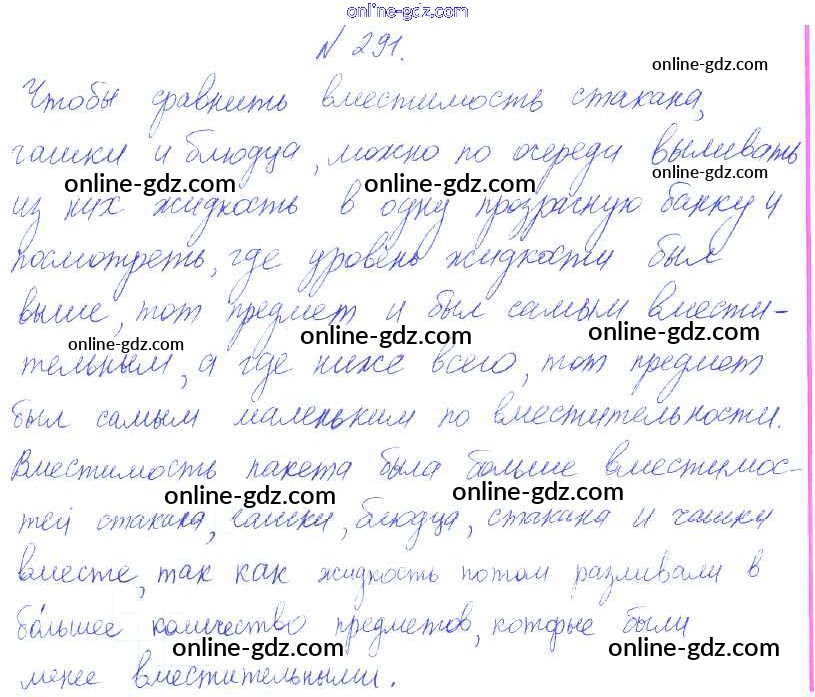 online-gdz.com
№ 291.
online-gdz.com
Чтобы сравнить вместимость стакана,
чашки и блюдца, можно по очереди выливать
online-gdz.com
online-gdz.com online-gdz.com
из них жидкость в одну прозрачную банку и
посмотреть, где уровень жидкости был
выше, тот предмет и был самым вмести-
online-gdz.com online-gdz.com online-gdz.com
тельным, а где ниже всего, тот предмет
был самым маленьким по вместительности.
Вместимость пакета была больше вместимос-
online-gdz.com online-gdz.com
тей стакана, чашки, блюдца, стакана и чашки
вместе, так как жидкость потом разливали в
бо́льшее количество предметов, которые были
online-gdz.com online-gdz.com
менее вместительными.